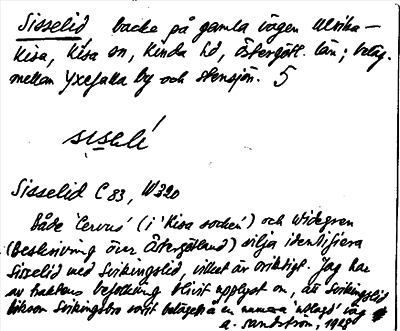 Sisselid backe på gamla vägen Ulrika –
Kisa, Kisa sn, Kinda hd, Östergötl. län; beläg.
mellan Yxefalla by och Stensjön. 5
Sisselid C 83, W 320
Både 'Cervus' (i 'Kisa socken') och Widegren
(Beskrivning över Östergötland) vilja identifiera
Sisselid med Svikingslid, vilket är oriktigt. Jag har
av traktens befolkning blivit upplyst om, att Svikingslid
liksom Svikingsbro varit beläget å en numera utlagd väg